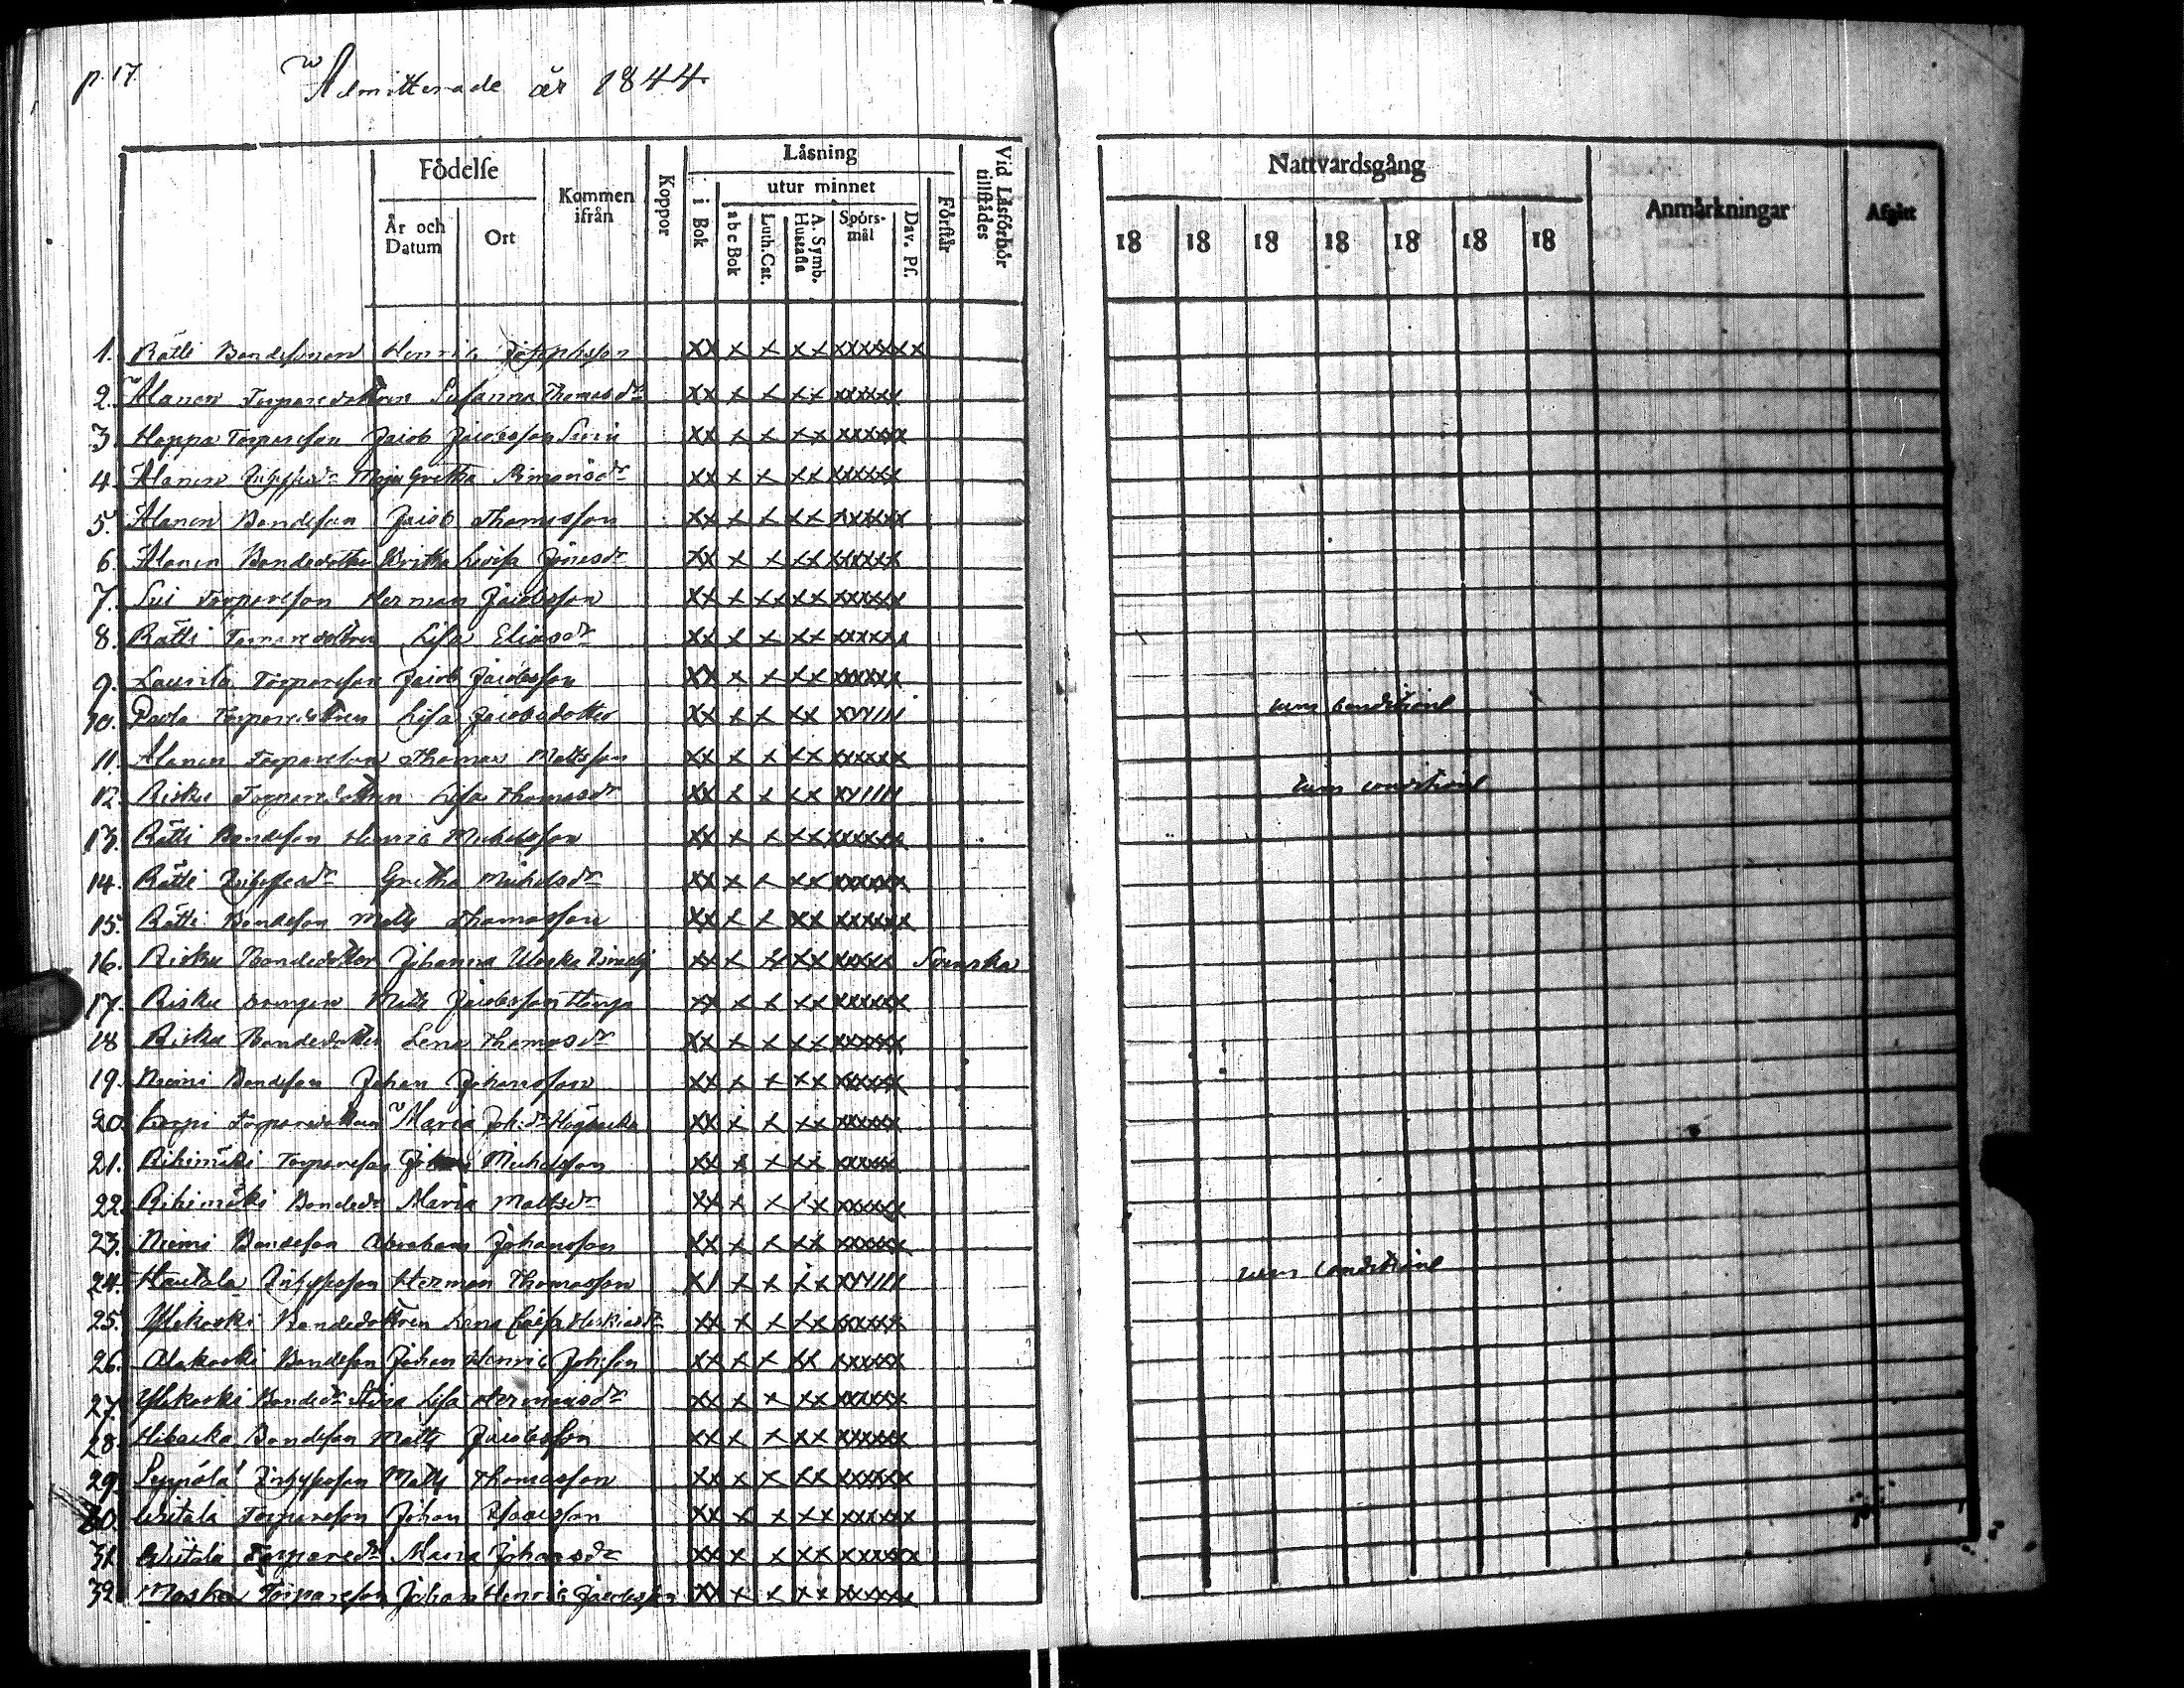 p. 17
Admitterade år 1844
Födelse
År och Datum
Ort
Kommen ifrån
Koppor
Läsning
i Bok
utur minnet
abc Bok
Luth. Cat.
A. Symb. Hustafla
Spörs-mål
Dav. Ps.
Förstår
Vid Läsförhör tillstädes
Nattvardsgång
18 18 18 18 18 18 18
Anmärkningar
Afgått
1. Rätti Bondesonen Henric xx x x xx xxxxxxx
2. Alanen Torparedottren Susanna Thomasdr xx x x xx xxxxxx
3. Hoppa Torpareson Jacob Jacobsson xx x x xx xxxxxx
4. Alanen Maja Gretha Simonsdr xx x x xx xxxxxx
5. Alanen Bondeson Jacob Thomasson xx x x xx xxxxxx
6. Alanen Bondedotter Gretha Lovisa xx x x xx xxxxxx
7. Sui Torpareson Herman Jacobsson xx x xx xx xxxxxx
8. Rätti Torparedottren Lisa Eliasdr xx x x xx xxxxxx
9. Laurila Torpareson Jacob Jacobsson xx x x xx xxxxxx
10. Torparedottren Lisa Jacobsdotter xx x x xx
cum conditione
11. Alanen Torpareson Thomas Mattsson xx x x xx xxxxxx
12. Risku Torparedottren Lisa Thomasdr xx x x xx
cum conditione
13. Rätti Bondeson Henric Michelsson xx x x xx xxxxxx
14. Rätti Gretha Michelsdr xx x x xx xxxxxx
15. Rätti Bondeson Matts Thomasson xx x x xx xxxxxx
16. Risku Bondedotter Johanna Ulrika xx x x xx xxxxx Svenska
17. Risku Drengen Matts Jacobsson xx x x xx xxxxxx
18 Risku Bondedotter Lena Thomasdr xx x x xx xxxxxx
19. Niemi Bondeson Johan Johansson xx x x xx xxxxxx
20. Torparedottren Maria Joh:dr xx x x xx xxxxxx
21. Rihimäki Torpareson Michelsson xx x x xx xxxxxx
22. Rihimäki Bondedr Maria Mattsdr xx x x xx xxxxxx
23. Niemi Bondeson Abraham Johansson xx x x xx xxxxxx
24. Hautala Inhyseson Herman Thomasson x x x xx
cum conditione
25. Ylikoski Bondedottren Lena Cajsa xx x x xx xxxxxx
26. Alakoski Bondeson Johan Henric Joh:son xx x x xx xxxxxx
27. Ylikoski Bondedr Stina Lisa Hermansdr xx x x xx xxxxxx
28. Bondeson Matts Jacobsson xx x x xx xxxxxx
29. Seppälä Inhyseson Matts Thomasson xx x x xx xxxxxx
30. Torpareson Johan xx x x xx xxxxxx
31. Torparedr Maria Johansdr xx x x xx xxxxxx
32. Torpareson Johan Henric Jacobsson xx x x xx xxxxxx